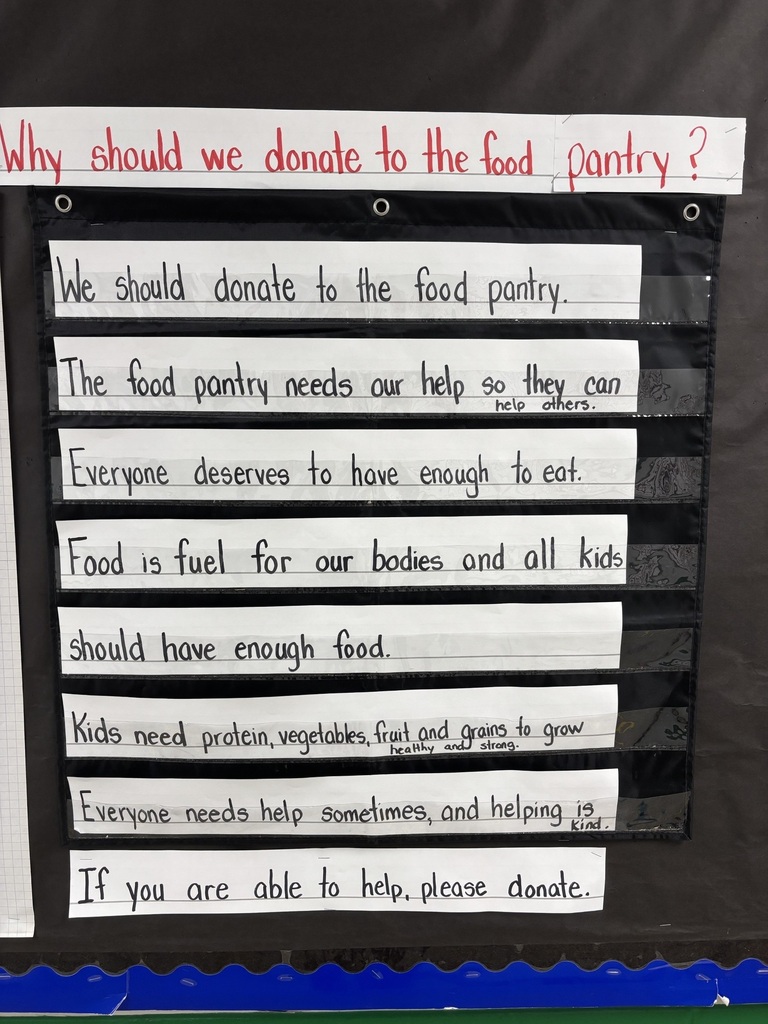 Why should we donate to the food pantry?
We should donate to the food pantry.
The food pantry needs our help so they can
help others.
Everyone deserves to have enough to eat.
Food is fuel for our bodies and all kids
should have enough food.
Kids need protein, vegetables, fruit and grains to grow
healthy and strong.
Everyone needs help sometimes, and helping is
kind.
If you are able to help, please donate.